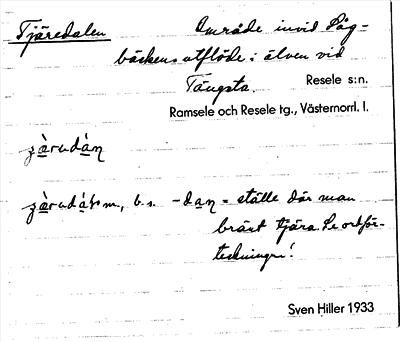 Tjäredalen Område invid Såg-
bäckens utflöde i älven vid
Tängsta. Resele s:n.
Ramsele och Resele tg., Västernorrl. l.
m., b. s. -dan = ställe där man
bränt tjära. Se ortför-
teckningen!
Sven Hiller 1933